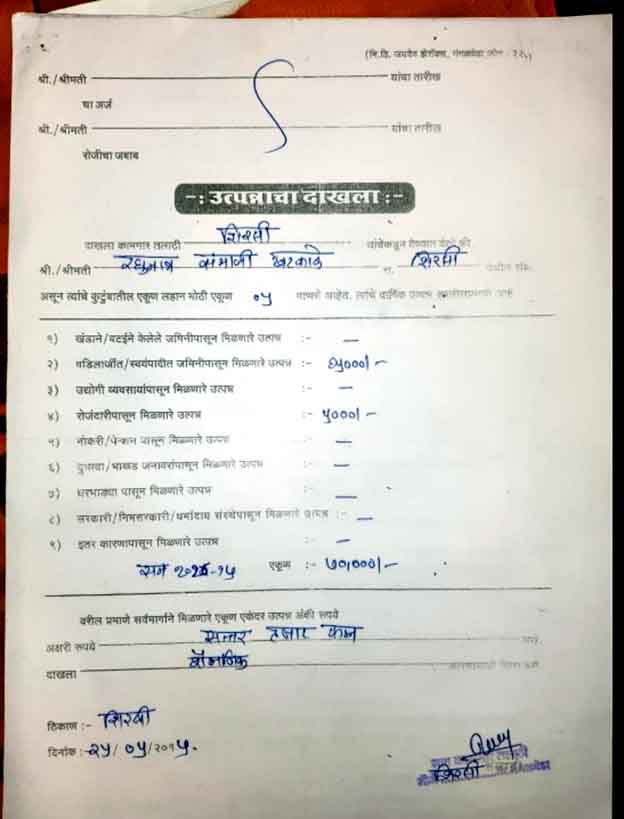 श्री./श्रीमती यांचा तारीख
चा अर्ज
श्री./श्रीमती यांचा तारीख
रोजीचा जबाब
-: उत्पन्नाचा दाखला :-
दाखला कामगार तलाठी शिरसी यांचेकडून देण्यात येतो की
श्री./श्रीमती रघुनाथ खटकाळे रा. शिरसी
असून त्यांचे कुटुंबातील एकूण लहान मोठी एकूण ०५ माणसे आहेत. त्यांचे वार्षिक उत्पन्न
१) खंडाने/बटईने केलेले जमिनीपासून मिळणारे उत्पन्न :- —
२) वडिलार्जीत/स्वयंपादीत जमिनीपासून मिळणारे उत्पन्न :- ६५०००/-
३) उद्योगी व्यवसायांपासून मिळणारे उत्पन्न :- —
४) रोजंदारीपासून मिळणारे उत्पन्न :- ५०००/-
५) नोकरी/पेन्शन पासून मिळणारे उत्पन्न :- —
६) दुभत्या/भाखड जनावरांपासून मिळणारे उत्पन्न :- —
७) घरभाड्या पासून मिळणारे उत्पन्न :- —
८) सरकारी/निमसरकारी/धर्मादाय संस्थेपासून मिळणारे उत्पन्न :- —
९) इतर कारणापासून मिळणारे उत्पन्न :- —
सन २०१४-१५ एकूण :- ७०,०००/-
वरील प्रमाणे सर्वमार्गाने मिळणारे एकूण एकंदर उत्पन्न अंकी रुपये
अक्षरी रुपये सत्तर हजार फक्त
दाखला
ठिकाण :- शिरसी
दिनांक :- २५/०५/२०१५.
शिरसी